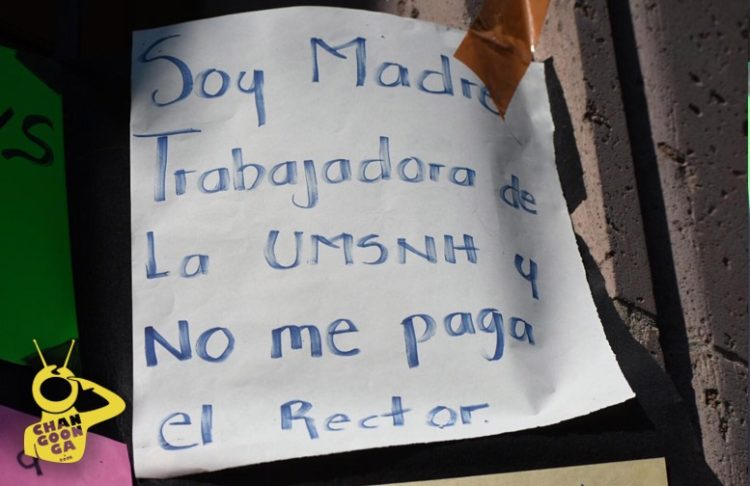 Soy Madre
Trabajadora de
La UMSNH y
No me paga
el Rector.
CHAN
GOON
GA
.com